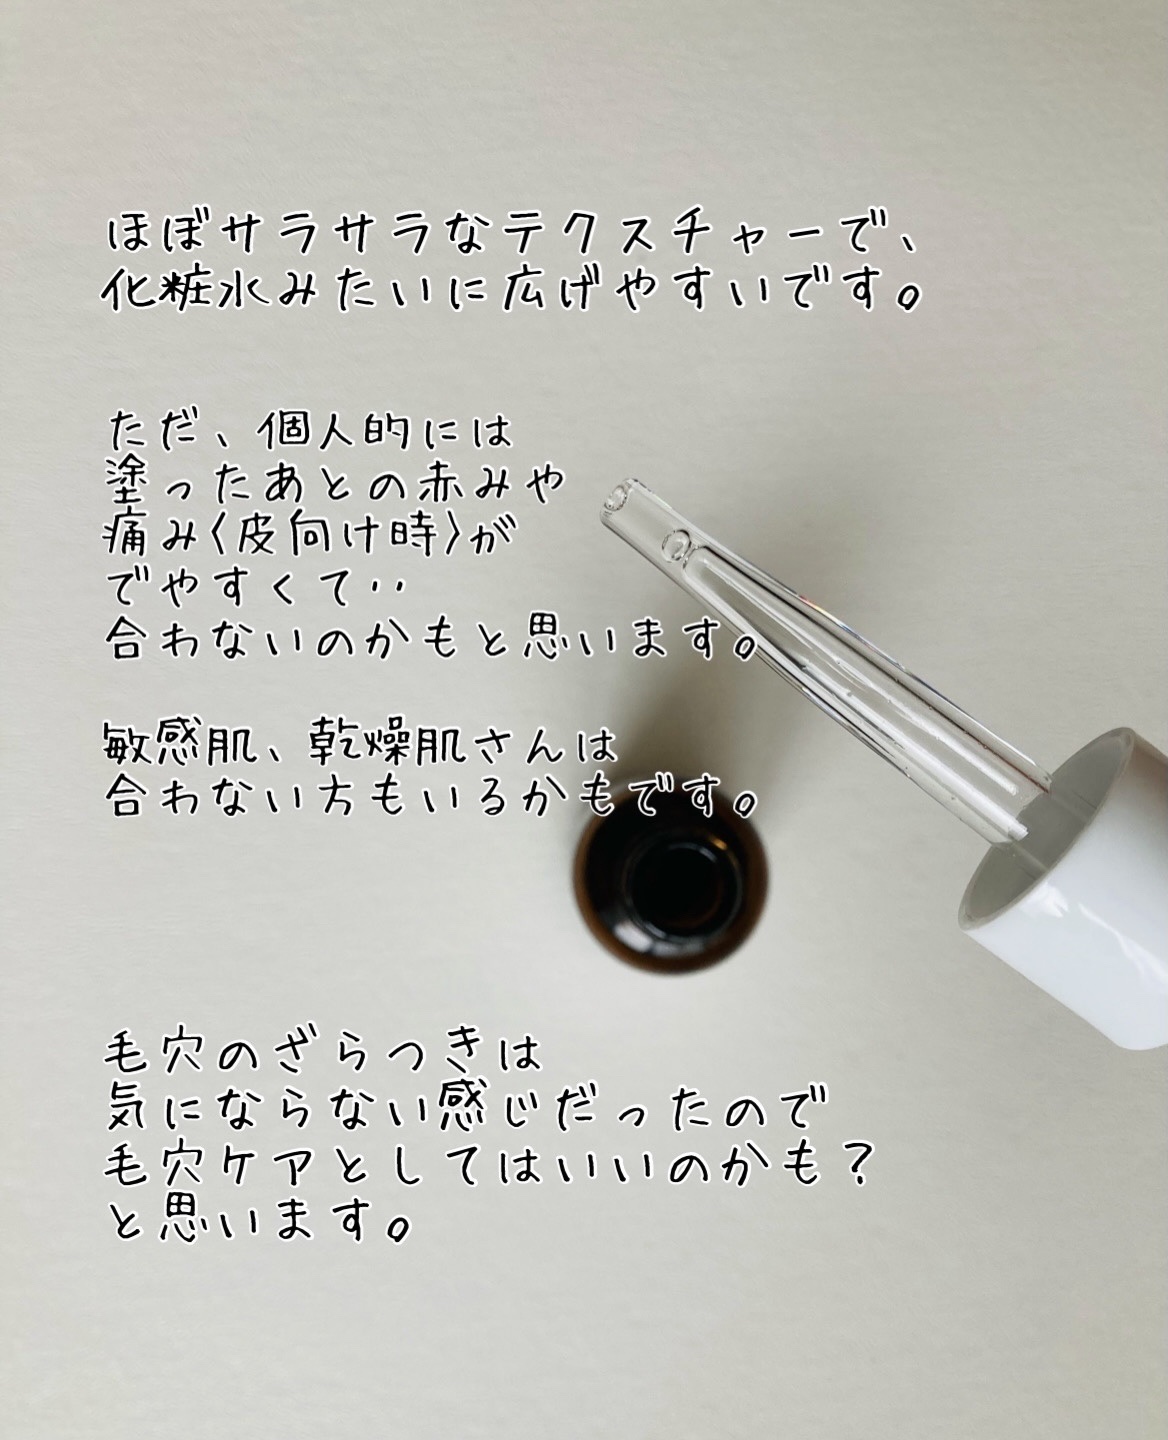 ほぼサラサラなテクスチャーで、
化粧水みたいに広げやすいです。
ただ、個人的には
塗ったあとの赤みや
痛み〈皮向け時〉が
でやすくて‥
合わないのかもと思います。
敏感肌、乾燥肌さんは
合わない方もいるかもです。
毛穴のざらつきは
気にならない感じだったので
毛穴ケアとしてはいいのかも？
と思います。